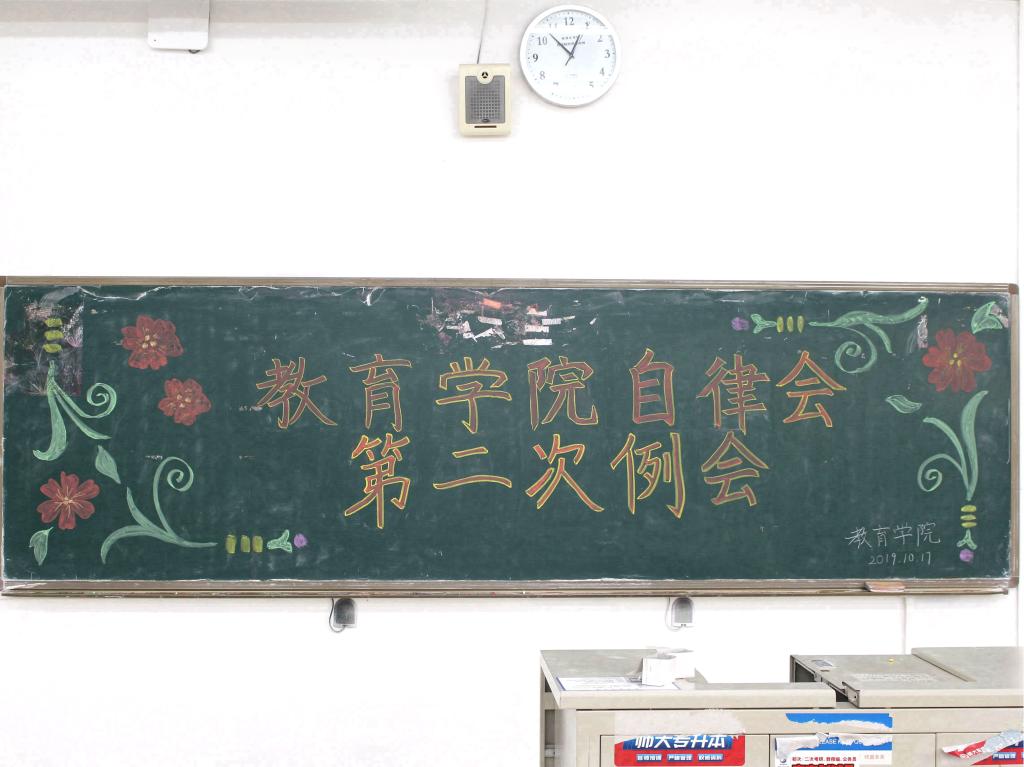 12
2
3
4
5
8
9
10
教育学院自律会
第二次例会
教育学院
2019.10.17
师大专升本
严格管理